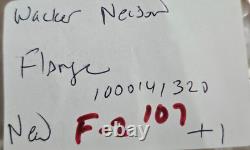 Wacker Neuson
Flange
1000141320
New F0 107 +1
ebay